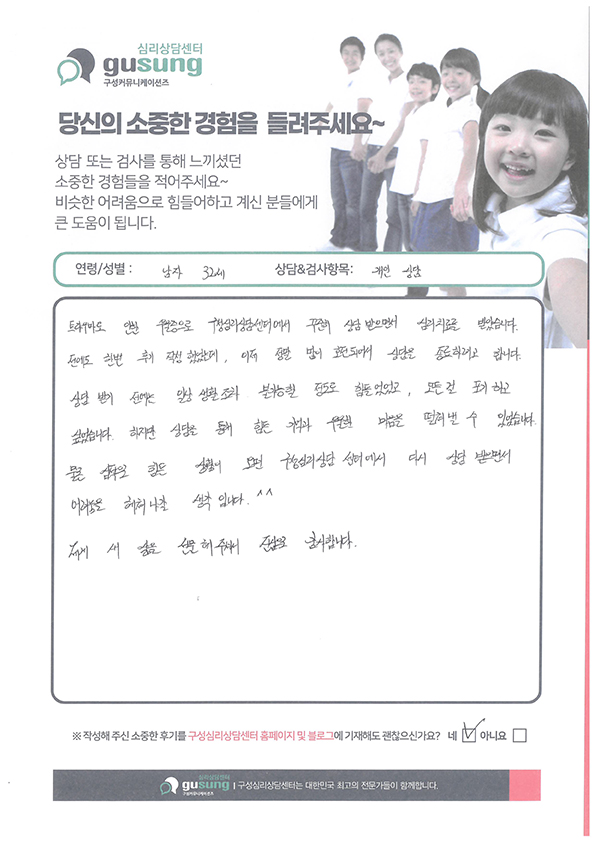 심리상담센터
gusung
구성커뮤니케이션즈
당신의 소중한 경험을 들려주세요~
상담 또는 검사를 통해 느끼셨던
소중한 경험들을 적어주세요~
비슷한 어려움으로 힘들어하고 계신 분들에게
큰 도움이 됩니다.
연령/성별 : 남자 32세 상담&검사항목: 개인 상담
트라우마로 인한 우울증으로 구성심리상담센터에서 꾸준히 상담 받으면서 심리치료를 받았습니다.
전에도 한번 후기 작성 했었는데, 이제 정말 많이 호전되어서 상담을 종료하려고 합니다.
상담 받기 전에는 일상 생활조차 불가능할 정도로 힘들었었고, 모든걸 포기 하고
싶었습니다. 하지만 상담을 통해 힘든 기억과 우울한 마음을 떨쳐낼 수 있었습니다.
물론 앞으로 힘든 상황이 오면 구성심리상담 센터에서 다시 상담 받으면서
어려움을 헤쳐나갈 생각 입니다. ^^
저에게 새 삶을 선물해 주셔서 진심으로 감사합니다.
※ 작성해 주신 소중한 후기를 구성심리상담센터 홈페이지 및 블로그에 기재해도 괜찮으신가요? 네 아니요
심리상담센터
gusung
구성커뮤니케이션즈
구성심리상담센터는 대한민국 최고의 전문가들이 함께합니다.